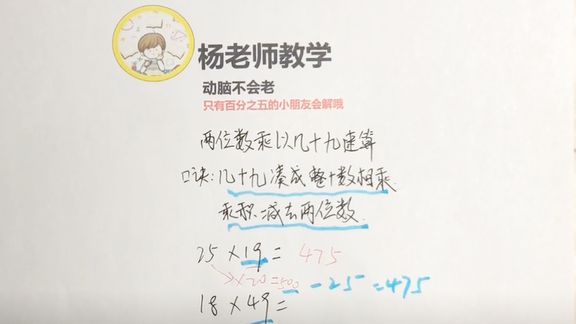 杨老师教学
动脑不会老
只有百分之五的小朋友会解哦
两位数乘以几十九速算
口诀:几十九凑成整十数相乘
乘积减去两位数
25×19=475
×20=500-25=475
18×49=